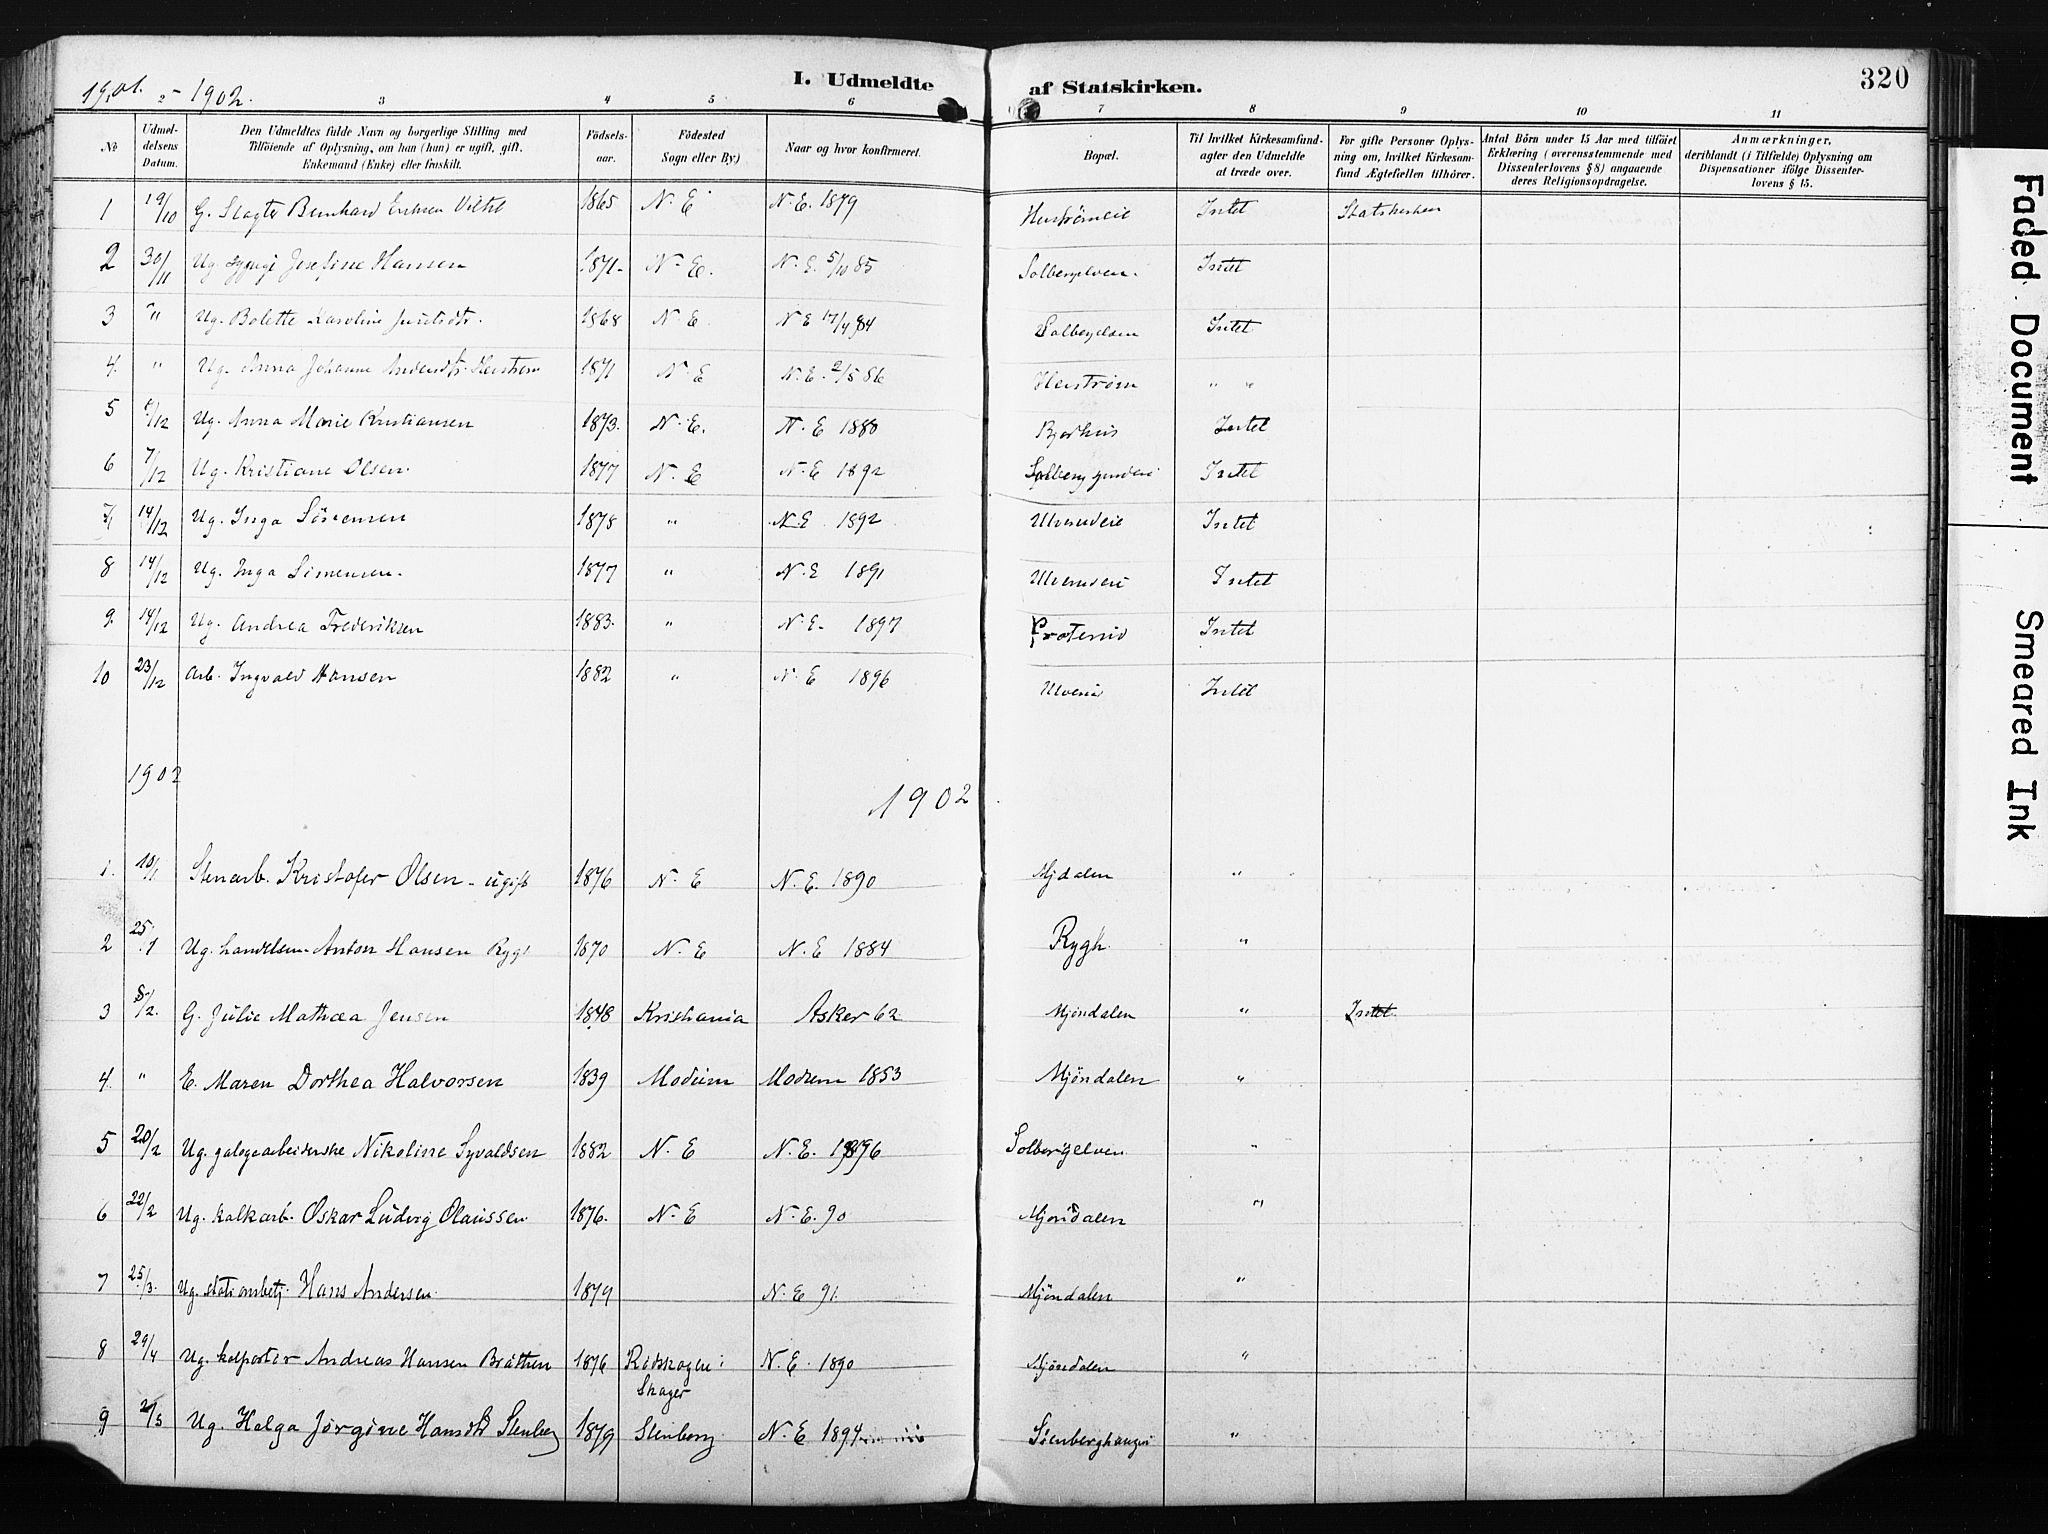 1901 - 1902.
I. Udmeldte af Statskirken.
320
2 3 4 5 6 7 8 9 10 11
№ | Udmeldelsens Datum. | Den Udmeldtes fulde Navn og borgerlige Stilling med Tilföiende af Oplysning, om han (hun) er ugift, gift, Enkemand (Enke) eller fraskilt. | Födselsaar. | Födested Sogn eller By.) | Naar og hvor konfirmeret. | Bopæl. | Til hvilket Kirkesamfund agter den Udmeldte at træde over. | For gifte Personer Oplysning om, hvilket Kirkesamfund Ægtefællen tilhörer. | Antal Börn under 15 Aar med tilföiet Erklæring (overensstemmende med Dissenterlovens § 8) angaaende deres Religionsopdragelse. | Anmærkninger, deriblandt (i Tilfælde) Oplysning om Dispensationer ifölge Dissenterlovens § 15.
1 19/10 G. Slagter Bernhard 1865 N. E N. E. 1879 Intet Statskirken
2 30/11 Ug. Josefine Hansen 1871 N. E. N. E. 5/10 85 Solbergelven. Intet
3 " Ug. Bolette Karoline 1868 N. E N E 17/4 84 Solbergelven Intet
4. " Ug. Anna Johanne Andersdtr. Herstrøm 1871 N. E N. E. 2/5 86 Herstrøm " "
5 /12 Ug. Anna Marie Kristiansen 1873. N. E. N. E 1880 Intet
6 7/12 Ug. Kristiane Olsen. 1877 N. E N. E 1892 Intet
7 14/12 Ug. Inga Sörensen 1878 " N. E 1892 Ulverudeie Intet
8 14/12 Ug. Inga Simensen. 1877 " N. E 1891 Ulverudeie Intet
9. 14/12 Ug. Andrea Frederiksen 1883. " N. E. 1897 Intet
10 23/12 Arb. Ingvald Hansen 1882 " N. E 1896 Intet
1902
1902
1. 10/1 Stenarb. Kristofer Olsen - ugift 1876 N. E N. E. 1890 Mjdalen "
2 25/1 Ug. Anton Hansen Rygh 1870 N. E N. E 1884 Rygh. "
3 5/2. G. Julie Mathea Jensen 1848 Kristiania Asker 62 Mjöndalen " Intet
4. " E. Maren Dorthea Halvorsen 1839 Modum Modum 1853 Mjöndalen "
5 20/2 Ug. galogearbeiderske Nikoline Syvaldsen 1882 N. E N. E. 1896 Solbergelven "
6 22/2 Ug. kalkarb. Oskar Ludvig Olaussen 1876. N. E N. E. 90 Mjondalen "
7 25/3. Ug. stationsbetj. Hans Andersen. 1879 N. E 91. Mjöndalen "
8 29/4 Ug. kolportör Andreas Hansen Bråthen 1876 Rödskogen i N. E. 1890 Mjöndalen "
Skoger
9 2/5 Ug. Helga Jørgine Hansdtr Stenberg 1879 Stenberg N. E 1894 "
Faded Document
Smeared Ink